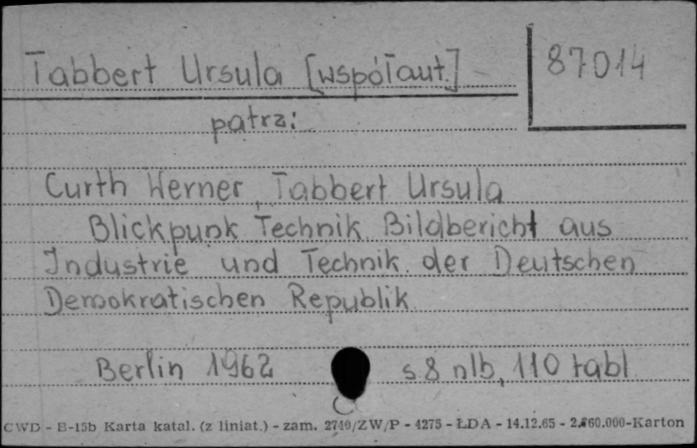 Tabbert Ursula [współaut.]
87014
patrz:
Curth Werner, Tabbert Ursula
Blickpunk Technik Bildbericht aus
Industrie und Technik der Deutschen
Demokratischen Republik
Berlin 1962 s 8 nlb, 110 tabl
CWD - E-15b Karta katal. (z liniat.) - zam. 2740/ZW/P - 4275 - ŁDA - 14.12.65 - 2.860.000-Karton